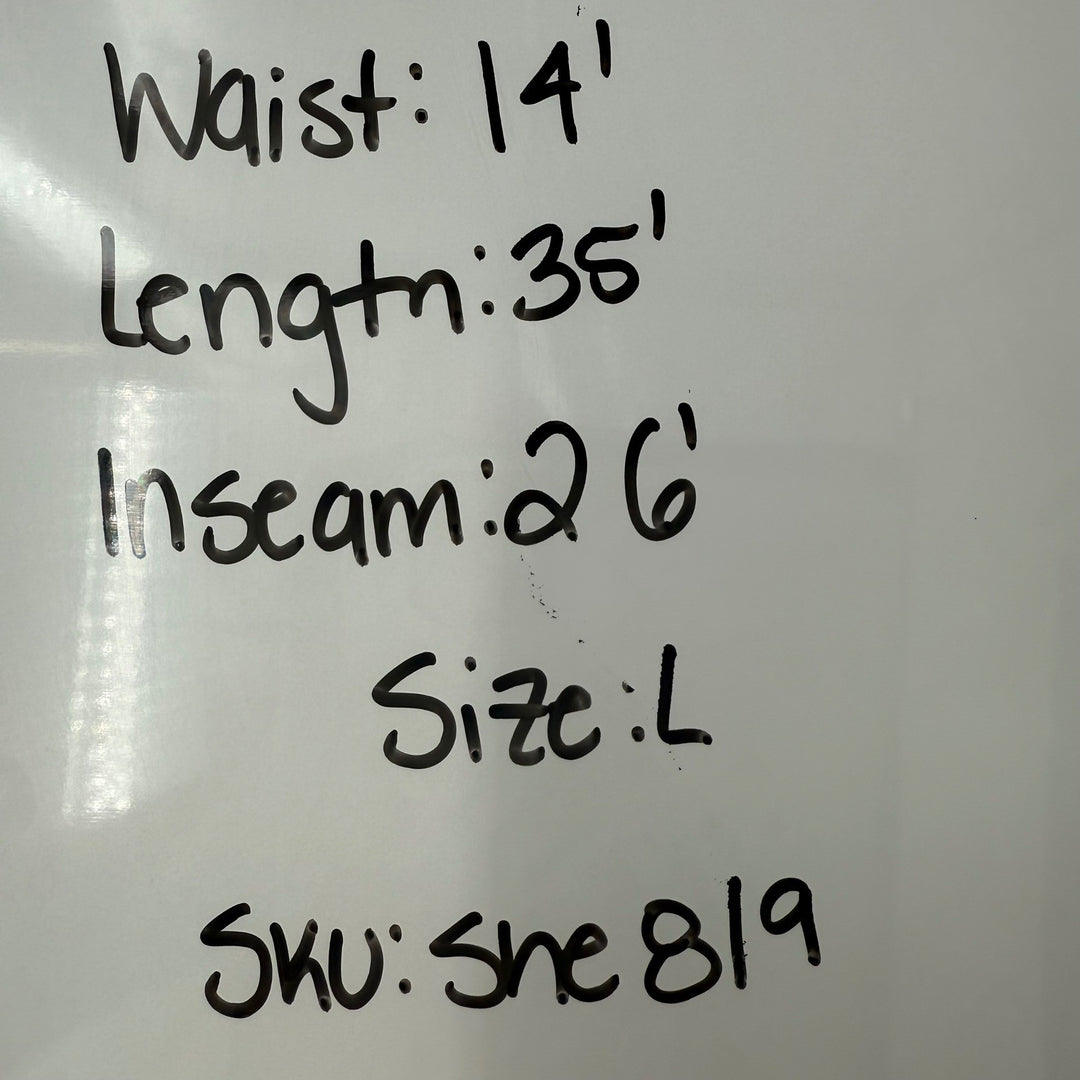 Waist: 14'
Length: 35'
Inseam: 26'
Size: L
SKU: She 819